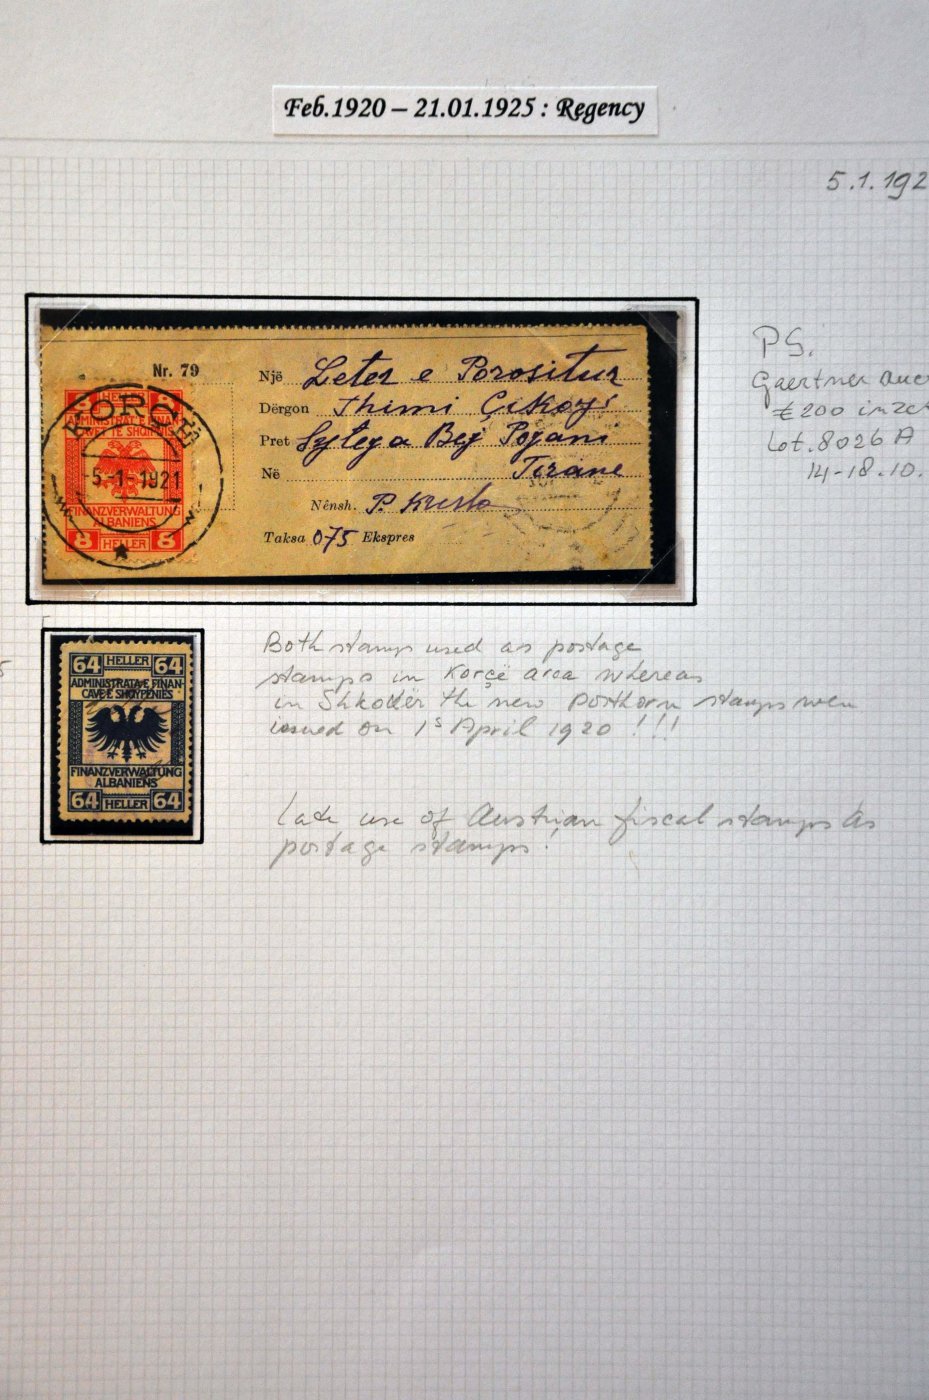 Feb.1920 – 21.01.1925 : Regency
5.1.192
PS.
Gaertner auc
€200 inzet
Lot.8026 A
14-18.10.
Nr. 79
8 HELLER 8
ADMINISTRATA E FINAN-
CAVE TE SHQIPNIES
FINANZVERWALTUNG
ALBANIENS
8 HELLER 8
KORCË
5.-1-1921
Një Leter e Porositur
Dërgon Thimi
Pret Bej Pojani
Në Tirane
Nënsh. P.
Taksa 075 Ekspres
64 HELLER 64
ADMINISTRATA E FINAN-
CAVE E SHQYPENIES
FINANZVERWALTUNG
ALBANIENS
64 HELLER 64
Both stamps used as postage
stamps in Korçë area whereas
in Shkodër the new posthorn stamps were
issued on 1s April 1920 !!!
Late use of Austrian fiscal stamps as
postage stamps!